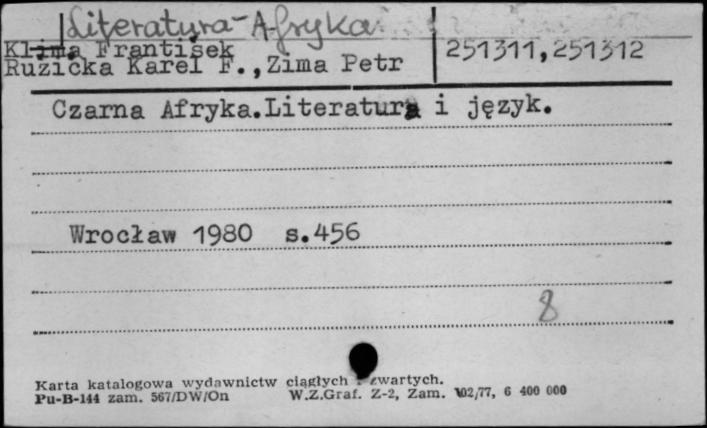 Literatura - Afryka
Klima František
Ruzicka Karel F.,Zima Petr
251311,251312
Czarna Afryka.Literatura i język.
Wrocław 1980 s.456
8
Karta katalogowa wydawnictw ciągłych i zwartych.
Pu-B-144 zam. 567/DW/On W.Z.Graf. Z-2, Zam. 102/77, 6 400 000